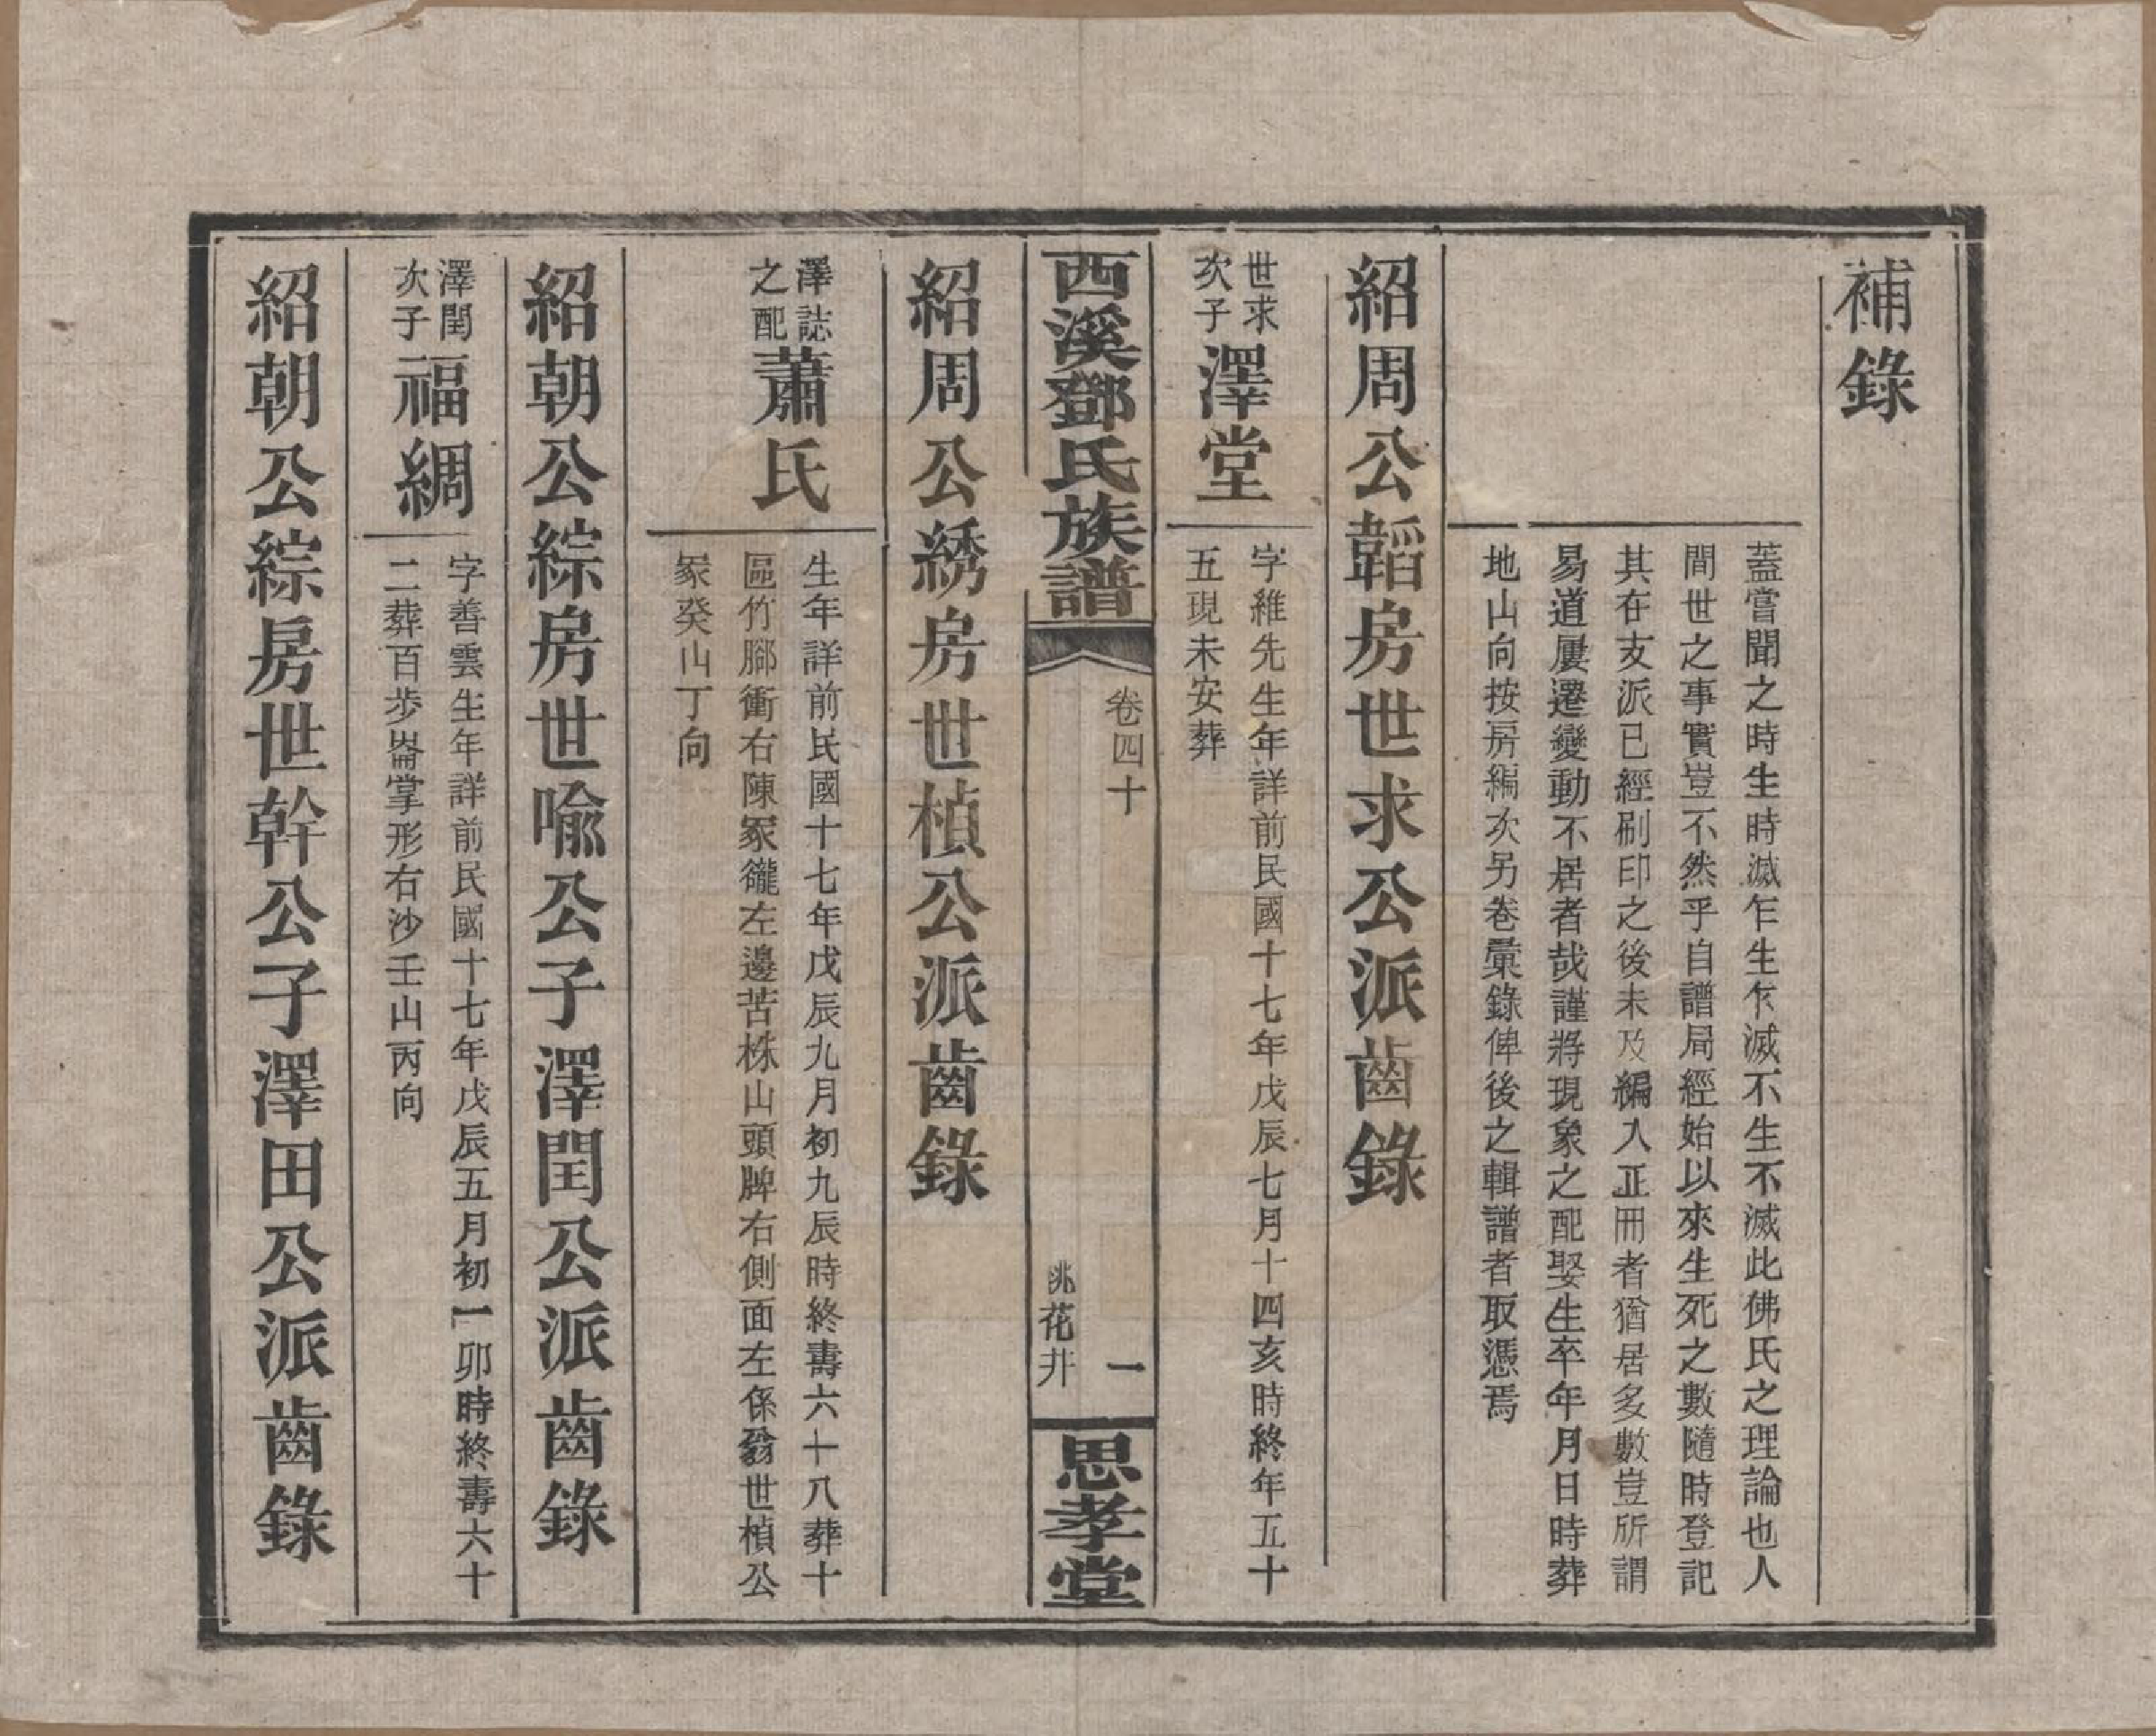 補錄
蓋嘗聞之時生時滅乍生乍滅不生不滅此佛氏之理論也人
間世之事實豈不然乎自譜局經始以來生死之數隨時登記
其在支派已經刷印之後未及編入正冊者猶居多數豈所謂
易道屢遷變動不居者哉謹將現象之配娶生卒年月日時葬
地山向按房編次另卷彙錄俾後之輯譜者取憑焉
紹周公韜房世求公派齒錄
世求
次子
澤堂
字維先生年詳前民國十七年戊辰七月十四亥時終年五十
五現未安葬
西溪鄧氏族譜
卷四十
一
洮花井
思孝堂
紹周公綉房世楨公派齒錄
澤誌
之配
蕭氏
生年詳前民國十七年戊辰九月初九辰時終壽六十八葬十
區竹腳衝右陳冢 左邊苦株山頭脾右側面左係翁世楨公
冢癸山丁向
紹朝公綜房世喻公子澤閏公派齒錄
澤閏
次子
福綢
字善雲生年詳前民國十七年戊辰五月初一卯時終壽六十
二葬百步崙掌形右沙壬山丙向
紹朝公綜房世幹公子澤田公派齒錄